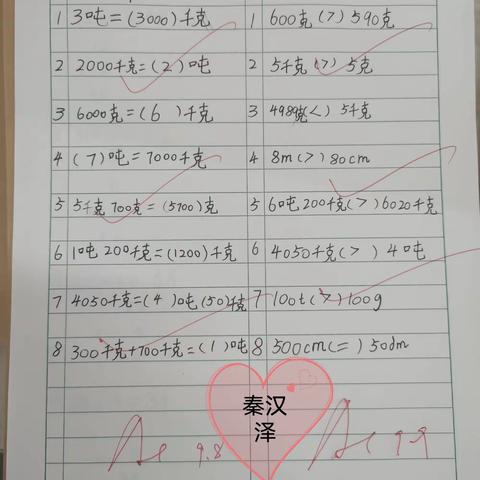 1 3吨=(3000)千克
2 2000千克=(2)吨
3 6000克=(6 )千克
4 (7)吨=7000千克
5 5千克700克=(5700)克
6 1吨200千克=(1200)千克
7 4050千克=(4)吨(50)千克
8 300千克+700千克=(1)吨
1 600克(>)590克
2 5千克(>)5克
3 4989克(<)5千克
4 8m(>)80cm
5 6吨200千克(>)6020千克
6 4050千克(> )4吨
7 100t(>)100g
8 500cm(=)50dm
秦汉
泽
9.8
9.9